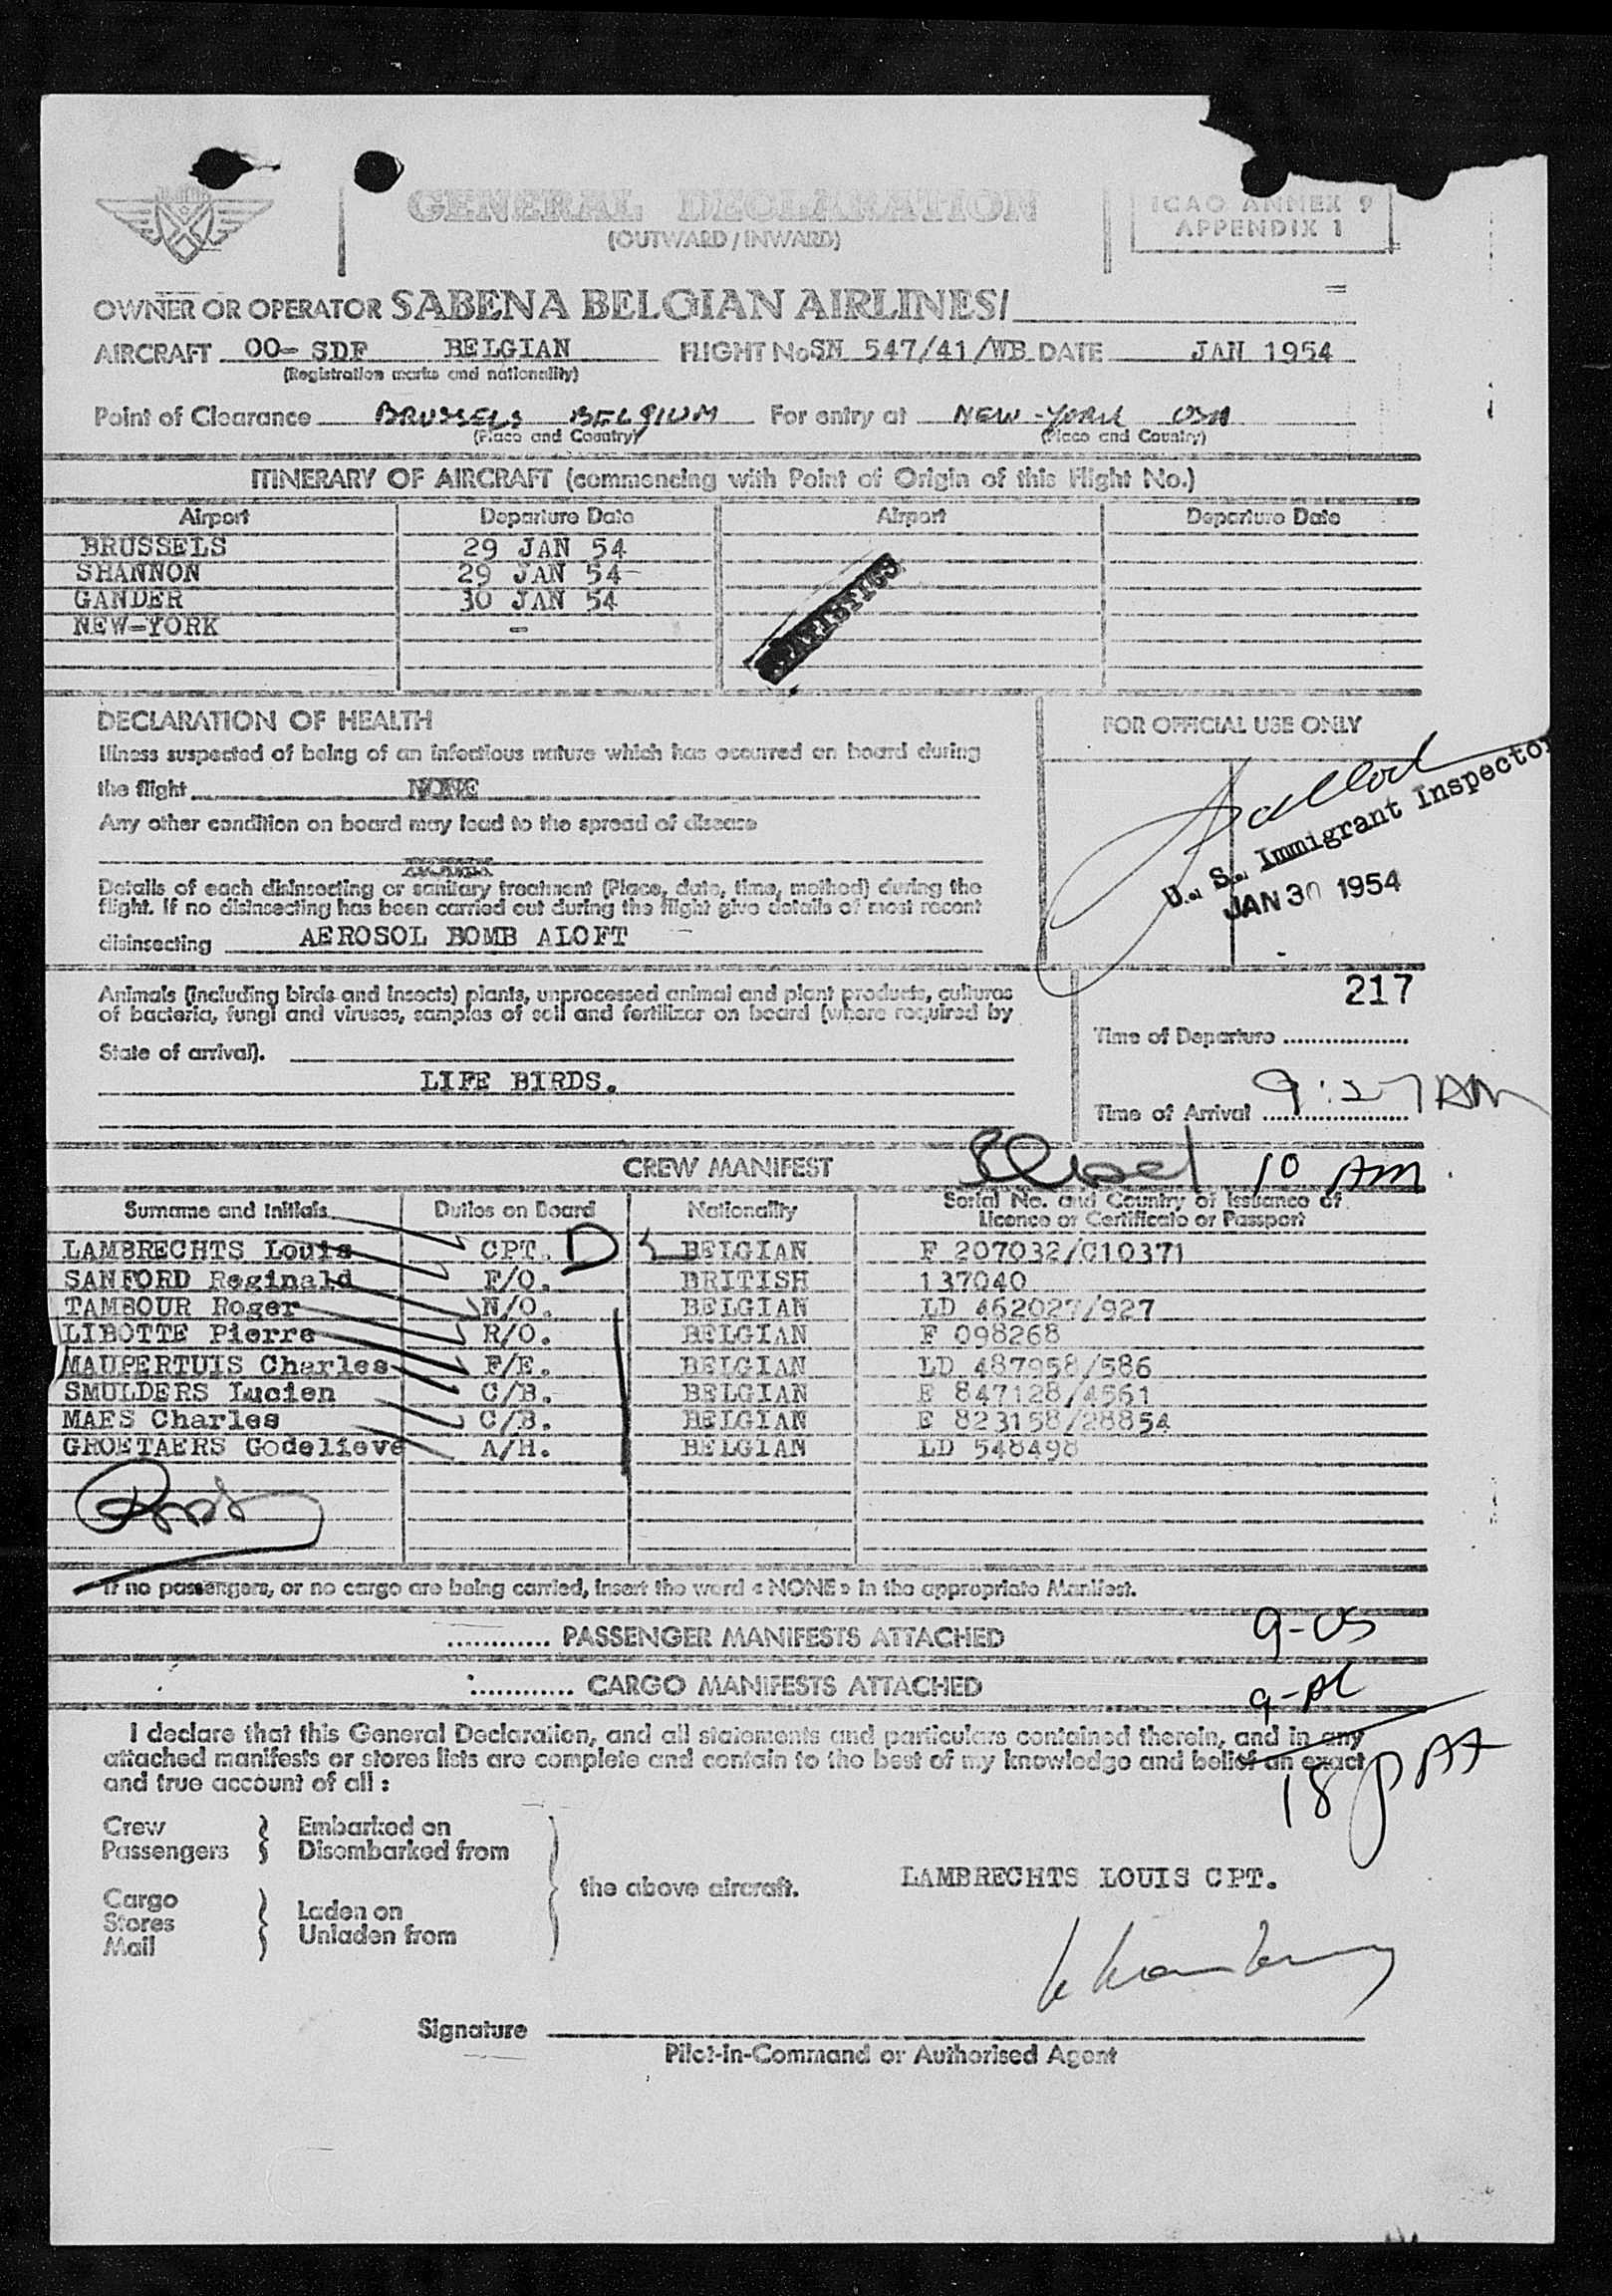 GENERAL DECLARATION
(OUTWARD / INWARD)
ICAO ANNEX 9
APPENDIX 1
OWNER OR OPERATOR SABENA BELGIAN AIRLINES/
AIRCRAFT OO- SDF BELGIAN FLIGHT No SN 547/41/WB DATE JAN 1954
(Registration marks and nationality)
Point of Clearance BRUSSELS BELGIUM For entry at NEW-YORK USA
(Place and Country) (Place and Country)
ITINERARY OF AIRCRAFT (commencing with Point of Origin of this Flight No.)
Airport Departure Date Airport Departure Date
BRUSSELS 29 JAN 54
SHANNON 29 JAN 54
GANDER 30 JAN 54
NEW-YORK -
STATISTICS
DECLARATION OF HEALTH
Illness suspected of being of an infectious nature which has occurred on board during
the flight NONE
Any other condition on board may lead to the spread of disease
Details of each disinsecting or sanitary treatment (Place, date, time, method) during the
flight. If no disinsecting has been carried out during the flight give details of most recent
disinsecting AEROSOL BOMB ALOFT
FOR OFFICIAL USE ONLY
U. S. Immigrant Inspector
JAN 30 1954
217
Animals (including birds and insects) plants, unprocessed animal and plant products, cultures
of bacteria, fungi and viruses, samples of soil and fertilizer on board (where required by
State of arrival).
LIFE BIRDS.
Time of Departure ..................
Time of Arrival 9:27 AM
CREW MANIFEST 10 AM
Surname and Initials Duties on Board Nationality Serial No. and Country of Issuance of
Licence or Certificate or Passport
LAMBRECHTS Louis CPT. D BELGIAN F 207032/C10371
SANFORD Reginald F/O. BRITISH 137040
TAMBOUR Roger N/O. BELGIAN LD 462027/927
LIBOTTE Pierre R/O. BELGIAN F 098268
MAUPERTUIS Charles F/E. BELGIAN LD 487958/586
SMULDERS Lucien C/B. BELGIAN E 847128/4561
MAES Charles C/B. BELGIAN E 823158/28854
GROETAERS Godelieve A/H. BELGIAN LD 548498
If no passengers, or no cargo are being carried, insert the word « NONE » in the appropriate Manifest.
............ PASSENGER MANIFESTS ATTACHED 9-US
............ CARGO MANIFESTS ATTACHED 9-AL
I declare that this General Declaration, and all statements and particulars contained therein, and in any
attached manifests or stores lists are complete and contain to the best of my knowledge and belief an exact
and true account of all :
18 PAX
Crew Embarked on
Passengers Disembarked from
the above aircraft.
Cargo
Stores Laden on
Mail Unladen from
LAMBRECHTS LOUIS CPT.
Signature
Pilot-in-Command or Authorised Agent